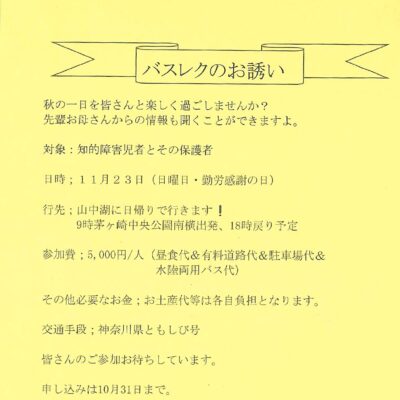 バスレクのお誘い
秋の一日を皆さんと楽しく過ごしませんか？
先輩お母さんからの情報も聞くことができますよ。
対象：知的障害児者とその保護者
日時；１１月２３日（日曜日・勤労感謝の日）
行先；山中湖に日帰りで行きます！
9時茅ヶ崎中央公園南横出発、18時戻り予定
参加費；5,000円/人（昼食代＆有料道路代＆駐車場代＆
水陸両用バス代）
その他必要なお金；お土産代等は各自負担となります。
交通手段；神奈川県ともしび号
皆さんのご参加お待ちしています。
申し込みは10月31日まで。